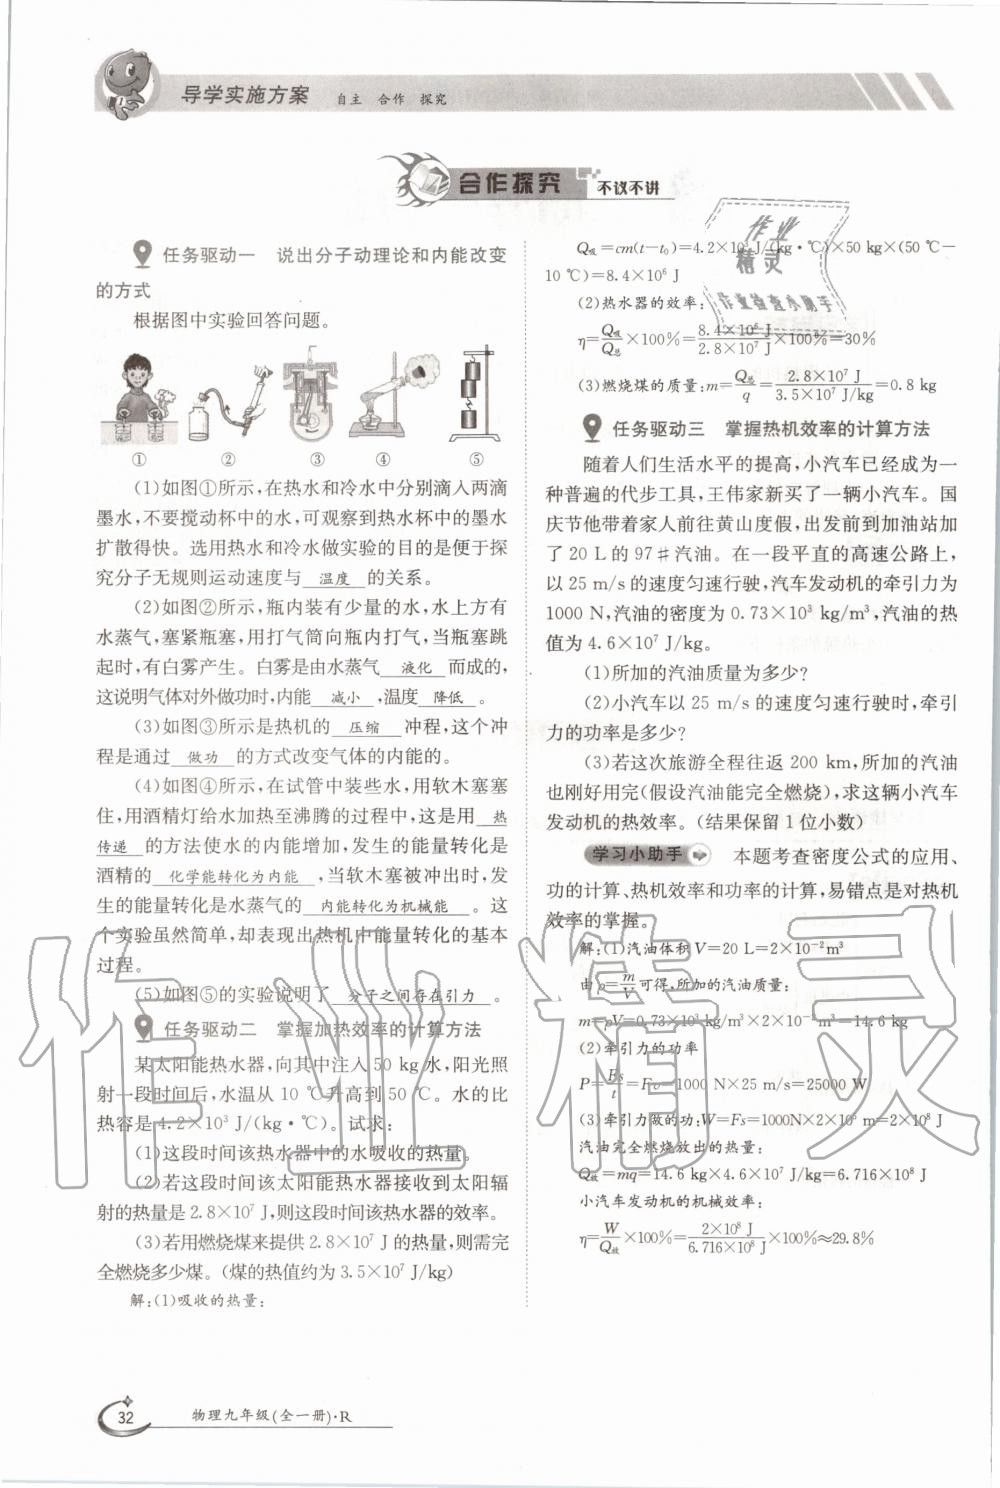 导学实施方案 自主 合作 探究
合作探究 不议不讲
任务驱动一 说出分子动理论和内能改变
的方式
根据图中实验回答问题。
① ② ③ ④ ⑤
(1)如图①所示,在热水和冷水中分别滴入两滴
墨水,不要搅动杯中的水,可观察到热水杯中的墨水
扩散得快。选用热水和冷水做实验的目的是便于探
究分子无规则运动速度与 温度 的关系。
(2)如图②所示,瓶内装有少量的水,水上方有
水蒸气,塞紧瓶塞,用打气筒向瓶内打气,当瓶塞跳
起时,有白雾产生。白雾是由水蒸气 液化 而成的,
这说明气体对外做功时,内能 减小 ,温度 降低 。
(3)如图③所示是热机的 压缩 冲程,这个冲
程是通过 做功 的方式改变气体的内能的。
(4)如图④所示,在试管中装些水,用软木塞塞
住,用酒精灯给水加热至沸腾的过程中,这是用 热
传递 的方法使水的内能增加,发生的能量转化是
酒精的 化学能转化为内能 ,当软木塞被冲出时,发
生的能量转化是水蒸气的 内能转化为机械能 。这
个实验虽然简单,却表现出热机中能量转化的基本
过程。
(5)如图⑤的实验说明了 分子之间存在引力 。
任务驱动二 掌握加热效率的计算方法
某太阳能热水器,向其中注入50 kg水,阳光照
射一段时间后,水温从 10 ℃升高到50 ℃。水的比
热容是4.2×10³ J/(kg·℃)。试求:
(1)这段时间该热水器中的水吸收的热量。
(2)若这段时间该太阳能热水器接收到太阳辐
射的热量是 2.8×10⁷ J,则这段时间该热水器的效率。
(3)若用燃烧煤来提供 2.8×10⁷ J 的热量,则需完
全燃烧多少煤。(煤的热值约为 3.5×10⁷ J/kg)
解:(1)吸收的热量:
Q吸=cm(t−t₀)=4.2×10³ J/(kg·℃)×50 kg×(50 ℃−
10 ℃)=8.4×10⁶ J
(2)热水器的效率:
η=Q吸/Q总×100%=8.4×10⁶ J/2.8×10⁷ J×100%=30%
(3)燃烧煤的质量:m=Q总/q=2.8×10⁷ J/3.5×10⁷ J/kg=0.8 kg
任务驱动三 掌握热机效率的计算方法
随着人们生活水平的提高,小汽车已经成为一
种普遍的代步工具,王伟家新买了一辆小汽车。国
庆节他带着家人前往黄山度假,出发前到加油站加
了 20 L 的 97# 汽油。在一段平直的高速公路上,
以 25 m/s 的速度匀速行驶,汽车发动机的牵引力为
1000 N,汽油的密度为 0.73×10³ kg/m³,汽油的热
值为 4.6×10⁷ J/kg。
(1)所加的汽油质量为多少?
(2)小汽车以 25 m/s 的速度匀速行驶时,牵引
力的功率是多少?
(3)若这次旅游全程往返 200 km,所加的汽油
也刚好用完(假设汽油能完全燃烧),求这辆小汽车
发动机的热效率。(结果保留 1 位小数)
学习小助手 本题考查密度公式的应用、
功的计算、热机效率和功率的计算,易错点是对热机
效率的掌握。
解:(1)汽油体积 V=20 L=2×10⁻²m³
由ρ=m/V可得,所加的汽油质量:
m=ρV=0.73×10³ kg/m³×2×10⁻² m³=14.6 kg
(2)牵引力的功率
P=Fs/t=Fv=1000 N×25 m/s=25000 W
(3)牵引力做的功:W=Fs=1000N×2×10⁵ m=2×10⁸ J
汽油完全燃烧放出的热量:
Q放=mq=14.6 kg×4.6×10⁷ J/kg=6.716×10⁸ J
小汽车发动机的机械效率:
η=W/Q放×100%=2×10⁸ J/6.716×10⁸ J×100%≈29.8%
作业
精灵
作业检查小助手
作业精灵
32 物理九年级(全一册)·R